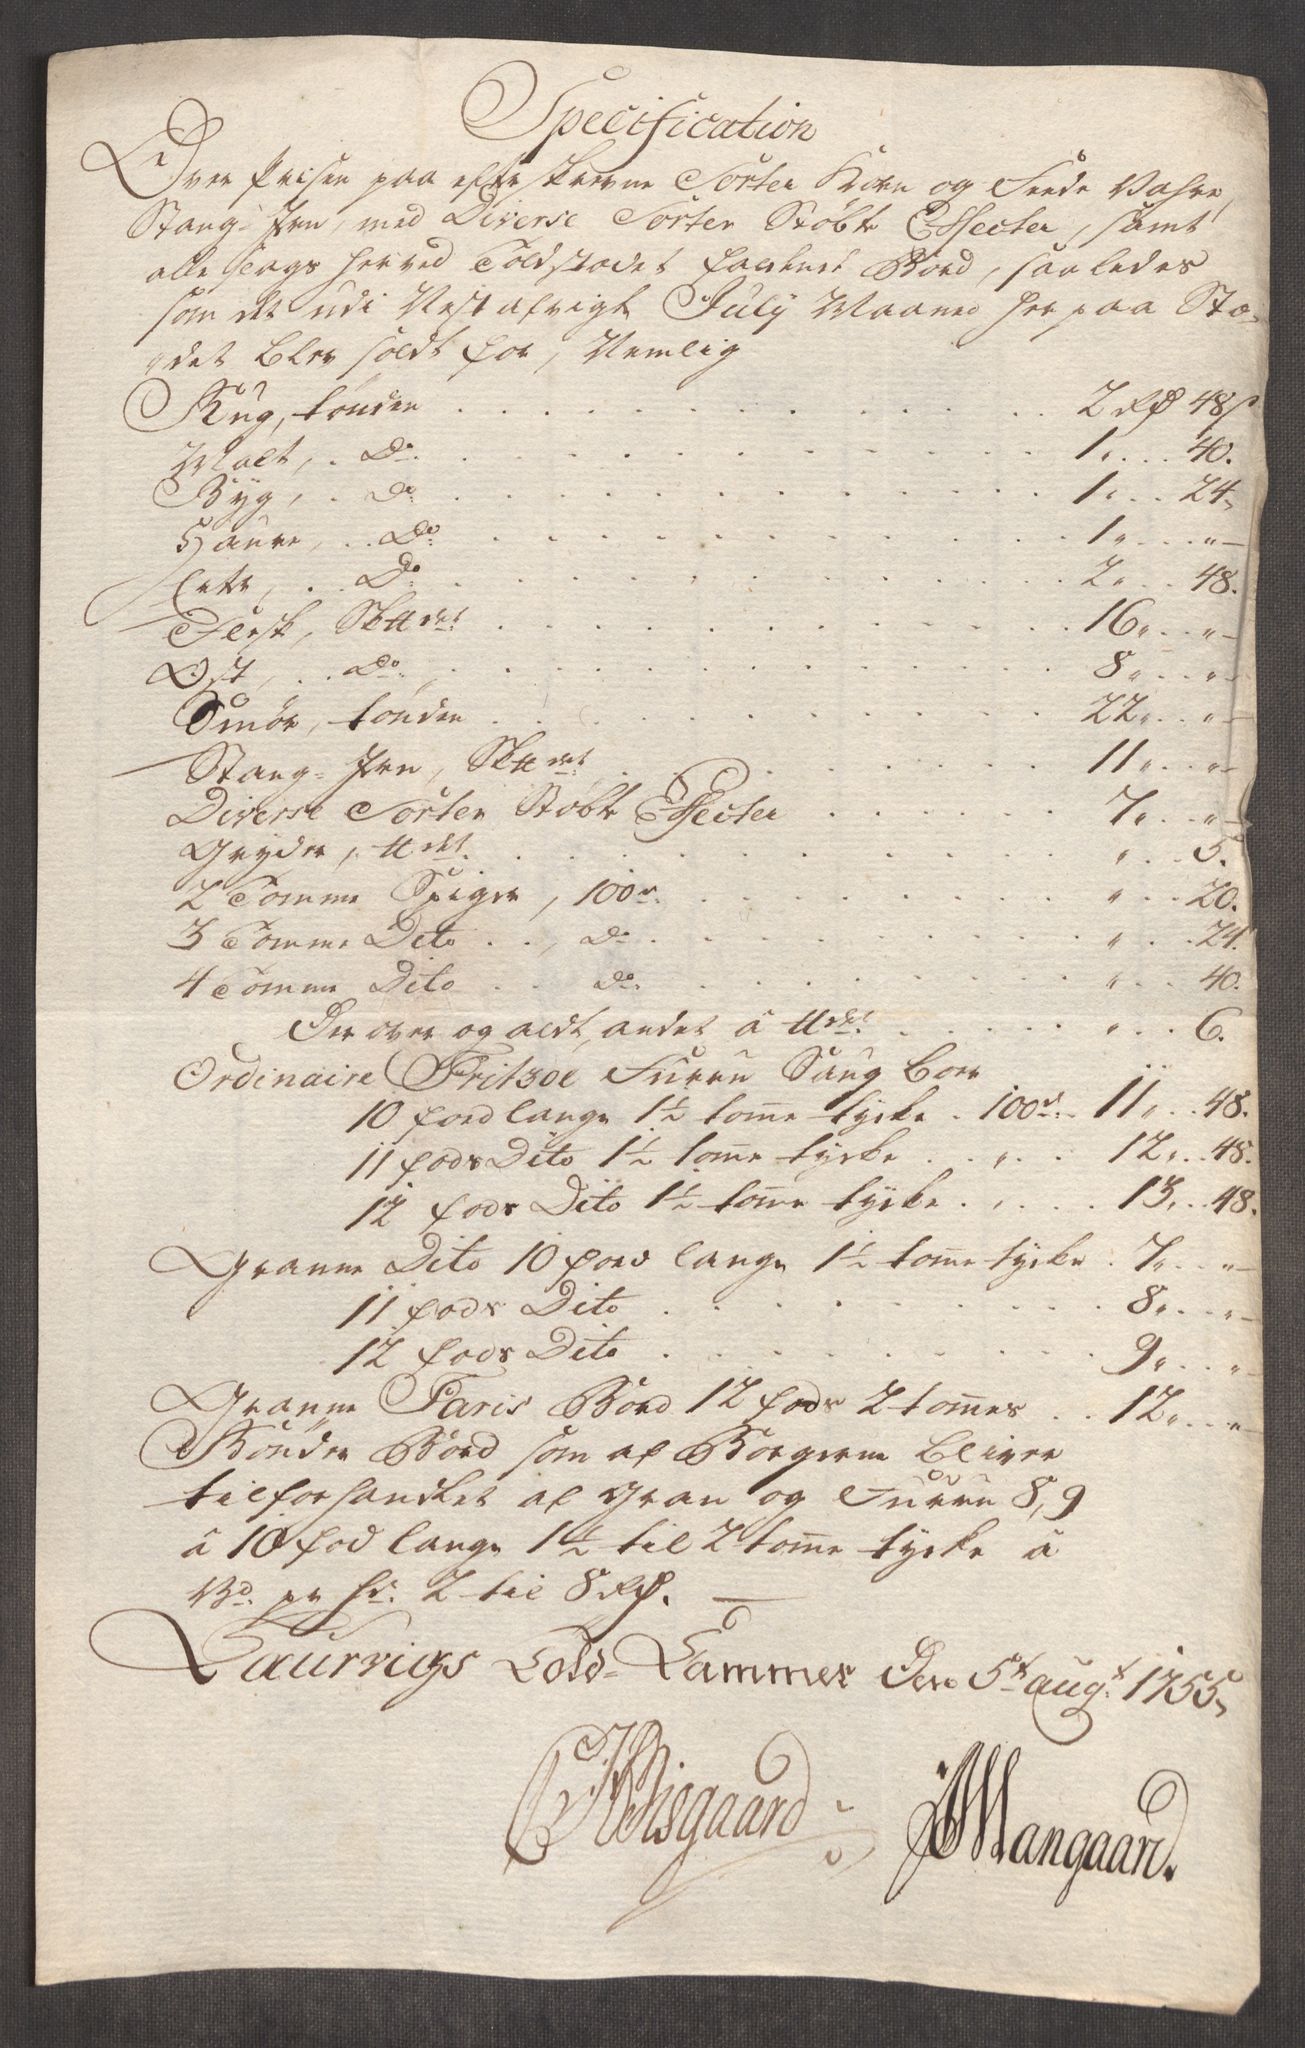 Specification
Over Prisen paa efterskrevne Sorter Korn og Feede Vahre,
Stang-Jern, med Diverse Sorter Støbte Effecter, samt
alle slags her ved Toldstædet faldende Bord, saaledes
som det udi Nest afvigte July Maaned her paa Stæ-
det blev soldt for, Nemlig
Rug, tønden . . . 2 Rd 48 s
Malt, . Do . . . 1 " . . 40.
Byg, . Do . . . 1 " . . 24.
Haure, . . Do . . . 1 " . . "
Erter, . . Do . . . 2 " . . 48.
Flesk, Sk℔det . . . 16 " . . "
Ost, . . Do . . . 8 " . . "
Smør, tønden . . . 22 " . . "
Stang-Jern, Sk℔det . . . 11 " . . "
Diverse Sorter Støbte Effecter . . . 7 " . . "
Gryder, ℔det . . . " . . 5.
2 Tomme Spiger, 100de . . . " . . 20.
3 Tomme Dito . . , do . . . " . . 24.
4 Tomme Dito . . do . . . " . . 40.
Der over og aldt andet â ℔det . . . " . . 6.
Ordinaire Fritzøe Furru Saug boer
10 foed lange 1½ tomme tycke . 100de 11 " . . 48.
11 fods Dito 1½ tomme tycke . . " . . 12 " . . 48.
12 fods Dito 1½ tomme tycke . " . . 13 " . . 48.
Granne Dito 10 foed lange 1½ tomme tycke . 7 " . . "
11 fods Dito . . . 8 " . . "
12 fods Dito . . . 9 " . . "
Granne Paris Bord 12 fods 2 tommes . . 12 " . . "
Bønder Bord som af Borgerne bliver
tilforhandlet af Gran og Furru 8, 9
â 10 fod lange 1½ til 2 tomme tycke â
pr 2 til 8 Rd.
Laurvigs Told-Cammer Den 5te augt 1755,
Wisgaard Mangaard.